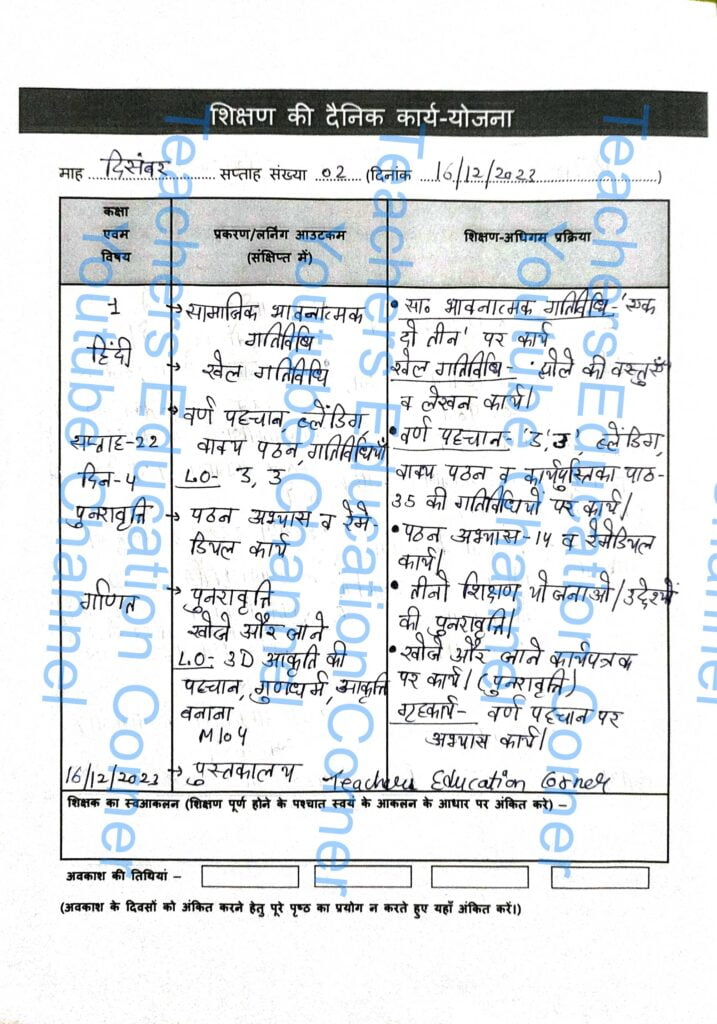 शिक्षण की दैनिक कार्य-योजना
माह दिसंबर सप्ताह संख्या 02 (दिनांक 16/12/2023)
कक्षा एवम विषय
प्रकरण/लर्निंग आउटकम (संक्षिप्त में)
शिक्षण-अधिगम प्रक्रिया
1
हिंदी
सप्ताह-22
दिन-4
पुनरावृत्ति
गणित
16/12/2023
→ सामाजिक भावनात्मक
गतिविधि
→ खेल गतिविधि
→ वर्ण पहचान, ब्लेंडिंग,
वाक्य पठन, गतिविधियाँ
L.O- उ, उ
→ पठन अभ्यास व रेमे-
डियल कार्य
→ पुनरावृत्ति
खोजे और जाने
L.O- 3D आकृति की
पहचान, गुणधर्म, आकृति
बनाना
M104
→ पुस्तकालय
• सा० भावनात्मक गतिविधि- 'एक
दो तीन' पर कार्य
खेल गतिविधि- झोले की वस्तुएँ
व लेखन कार्य।
• वर्ण पहचान- ब्लेंडिंग,
वाक्य पठन व कार्यपुस्तिका पाठ-
35 की गतिविधियों पर कार्य।
• पठन अभ्यास-14 व रेमेडियल
कार्य।
• तीनो शिक्षण योजनाओ/उद्देश्यों
की पुनरावृत्ति।
• खोजे और जाने कार्यपत्रक
पर कार्य। (पुनरावृत्ति)
गृहकार्य- वर्ण पहचान पर
अभ्यास कार्य।
Teachers Education Corner
शिक्षक का स्वआकलन (शिक्षण पूर्ण होने के पश्चात स्वयं के आकलन के आधार पर अंकित करे) –
अवकाश की तिथियां –
(अवकाश के दिवसों को अंकित करने हेतु पूरे पृष्ठ का प्रयोग न करते हुए यहाँ अंकित करें।)
Teachers Education Corner
Youtube Channel
Teachers Education Corner
Youtube Channel
Teachers Education Corner
Youtube Channel